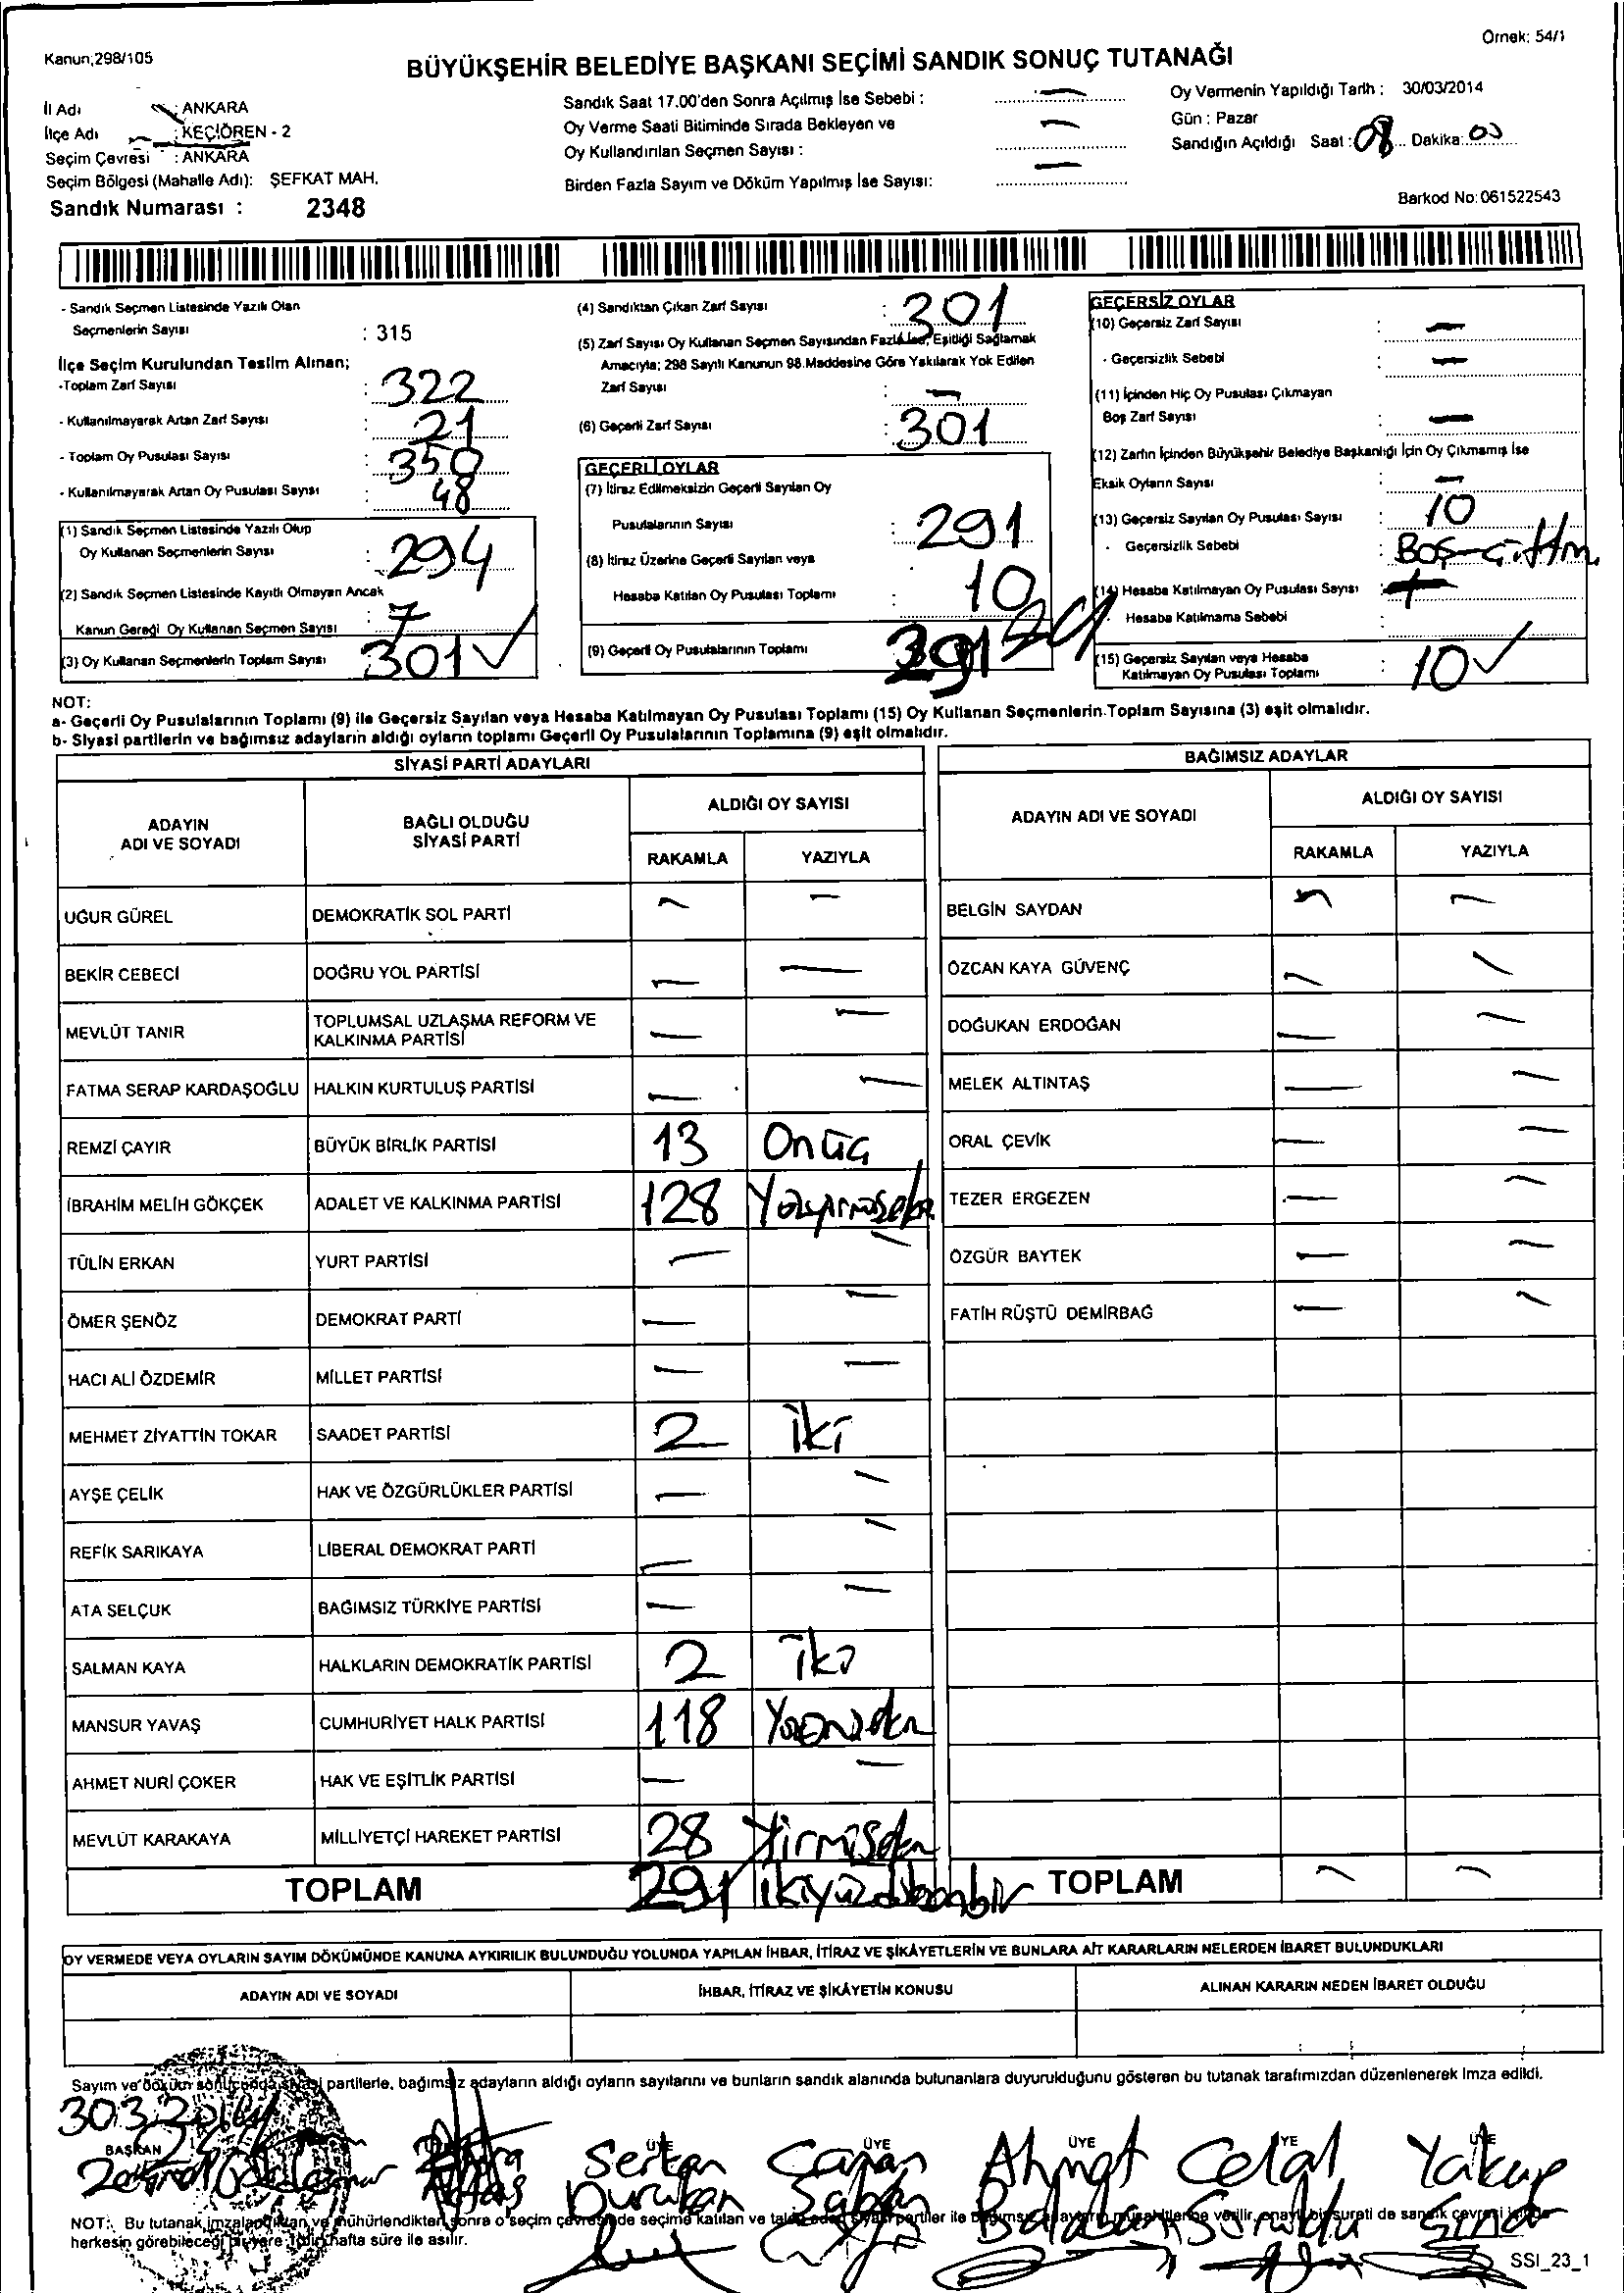 Örnek: 54/1
Kanun;298/105
BÜYÜKŞEHİR BELEDİYE BAŞKANI SEÇİMİ SANDIK SONUÇ TUTANAĞI
İl Adı : ANKARA
İlçe Adı : KEÇİÖREN - 2
Seçim Çevresi : ANKARA
Seçim Bölgesi (Mahalle Adı): ŞEFKAT MAH.
Sandık Numarası : 2348
Sandık Saat 17.00'den Sonra Açılmış İse Sebebi : —
Oy Verme Saati Bitiminde Sırada Bekleyen ve —
Oy Kullandırılan Seçmen Sayısı :
Birden Fazla Sayım ve Döküm Yapılmış İse Sayısı: —
Oy Vermenin Yapıldığı Tarih : 30/03/2014
Gün : Pazar
Sandığın Açıldığı Saat : 08 Dakika: 00
Barkod No: 061522543
- Sandık Seçmen Listesinde Yazılı Olan
Seçmenlerin Sayısı : 315
İlçe Seçim Kurulundan Teslim Alınan;
-Toplam Zarf Sayısı : 322
- Kullanılmayarak Artan Zarf Sayısı : 21
- Toplam Oy Pusulası Sayısı : 350
- Kullanılmayarak Artan Oy Pusulası Sayısı : 48
(1) Sandık Seçmen Listesinde Yazılı Olup
Oy Kullanan Seçmenlerin Sayısı : 294
(2) Sandık Seçmen Listesinde Kayıtlı Olmayan Ancak
Kanun Gereği Oy Kullanan Seçmen Sayısı : 7
(3) Oy Kullanan Seçmenlerin Toplam Sayısı 301 ✓
(4) Sandıktan Çıkan Zarf Sayısı : 301
(5) Zarf Sayısı Oy Kullanan Seçmen Sayısından Fazla İse, Eşitliği Sağlamak
Amacıyla; 298 Sayılı Kanunun 98.Maddesine Göre Yakılarak Yok Edilen
Zarf Sayısı : —
(6) Geçerli Zarf Sayısı : 301
GEÇERLİ OYLAR
(7) İtiraz Edilmeksizin Geçerli Sayılan Oy
Pusulalarının Sayısı : 291
(8) İtiraz Üzerine Geçerli Sayılan veya
Hesaba Katılan Oy Pusulası Toplamı : 10
(9) Geçerli Oy Pusulalarının Toplamı
GEÇERSİZ OYLAR
(10) Geçersiz Zarf Sayısı : —
- Geçersizlik Sebebi : —
(11) İçinden Hiç Oy Pusulası Çıkmayan
Boş Zarf Sayısı : —
(12) Zarfın İçinden Büyükşehir Belediye Başkanlığı İçin Oy Çıkmamış İse
Eksik Oyların Sayısı : —
(13) Geçersiz Sayılan Oy Pusulası Sayısı : 10
- Geçersizlik Sebebi : Boş
(14) Hesaba Katılmayan Oy Pusulası Sayısı :
- Hesaba Katılmama Sebebi :
(15) Geçersiz Sayılan veya Hesaba
Katılmayan Oy Pusulası Toplamı : 10 ✓
NOT:
a- Geçerli Oy Pusulalarının Toplamı (9) ile Geçersiz Sayılan veya Hesaba Katılmayan Oy Pusulası Toplamı (15) Oy Kullanan Seçmenlerin Toplam Sayısına (3) eşit olmalıdır.
b- Siyasi partilerin ve bağımsız adayların aldığı oyların toplamı Geçerli Oy Pusulalarının Toplamına (9) eşit olmalıdır.
SİYASİ PARTİ ADAYLARI
ADAYIN ADI VE SOYADI BAĞLI OLDUĞU SİYASİ PARTİ ALDIĞI OY SAYISI
RAKAMLA YAZIYLA
UĞUR GÜREL DEMOKRATİK SOL PARTİ — —
BEKİR CEBECİ DOĞRU YOL PARTİSİ — —
MEVLÜT TANIR TOPLUMSAL UZLAŞMA REFORM VE KALKINMA PARTİSİ — —
FATMA SERAP KARDAŞOĞLU HALKIN KURTULUŞ PARTİSİ — —
REMZİ ÇAYIR BÜYÜK BİRLİK PARTİSİ 13 Onüç
İBRAHİM MELİH GÖKÇEK ADALET VE KALKINMA PARTİSİ 128
TÜLİN ERKAN YURT PARTİSİ — —
ÖMER ŞENÖZ DEMOKRAT PARTİ — —
HACI ALİ ÖZDEMİR MİLLET PARTİSİ — —
MEHMET ZİYATTİN TOKAR SAADET PARTİSİ 2 iki
AYŞE ÇELİK HAK VE ÖZGÜRLÜKLER PARTİSİ — —
REFİK SARIKAYA LİBERAL DEMOKRAT PARTİ — —
ATA SELÇUK BAĞIMSIZ TÜRKİYE PARTİSİ — —
SALMAN KAYA HALKLARIN DEMOKRATİK PARTİSİ 2 iki
MANSUR YAVAŞ CUMHURİYET HALK PARTİSİ 118
AHMET NURİ ÇOKER HAK VE EŞİTLİK PARTİSİ — —
MEVLÜT KARAKAYA MİLLİYETÇİ HAREKET PARTİSİ 28
TOPLAM 291
BAĞIMSIZ ADAYLAR
ADAYIN ADI VE SOYADI ALDIĞI OY SAYISI
RAKAMLA YAZIYLA
BELGİN SAYDAN — —
ÖZCAN KAYA GÜVENÇ — —
DOĞUKAN ERDOĞAN — —
MELEK ALTINTAŞ — —
ORAL ÇEVİK — —
TEZER ERGEZEN — —
ÖZGÜR BAYTEK — —
FATİH RÜŞTÜ DEMİRBAĞ — —
TOPLAM — —
OY VERMEDE VEYA OYLARIN SAYIM DÖKÜMÜNDE KANUNA AYKIRILIK BULUNDUĞU YOLUNDA YAPILAN İHBAR, İTİRAZ VE ŞİKÂYETLERİN VE BUNLARA AİT KARARLARIN NELERDEN İBARET BULUNDUKLARI
ADAYIN ADI VE SOYADI İHBAR, İTİRAZ VE ŞİKÂYETİN KONUSU ALINAN KARARIN NEDEN İBARET OLDUĞU
Sayım ve döküm sonucunda siyasi partilerle, bağımsız adayların aldığı oyların sayılarını ve bunların sandık alanında bulunanlara duyurulduğunu gösteren bu tutanak tarafımızdan düzenlenerek imza edildi.
30.3.2014
BAŞKAN ÜYE ÜYE ÜYE ÜYE ÜYE
Serkan Ahmet Celal Yakup
Durukan Balaban
NOT: Bu tutanak imzalandıktan ve mühürlendikten sonra o seçim çevresinde seçime katılan ve
herkesin görebileceği bir yere hafta süre ile asılır.
SSI_23_1